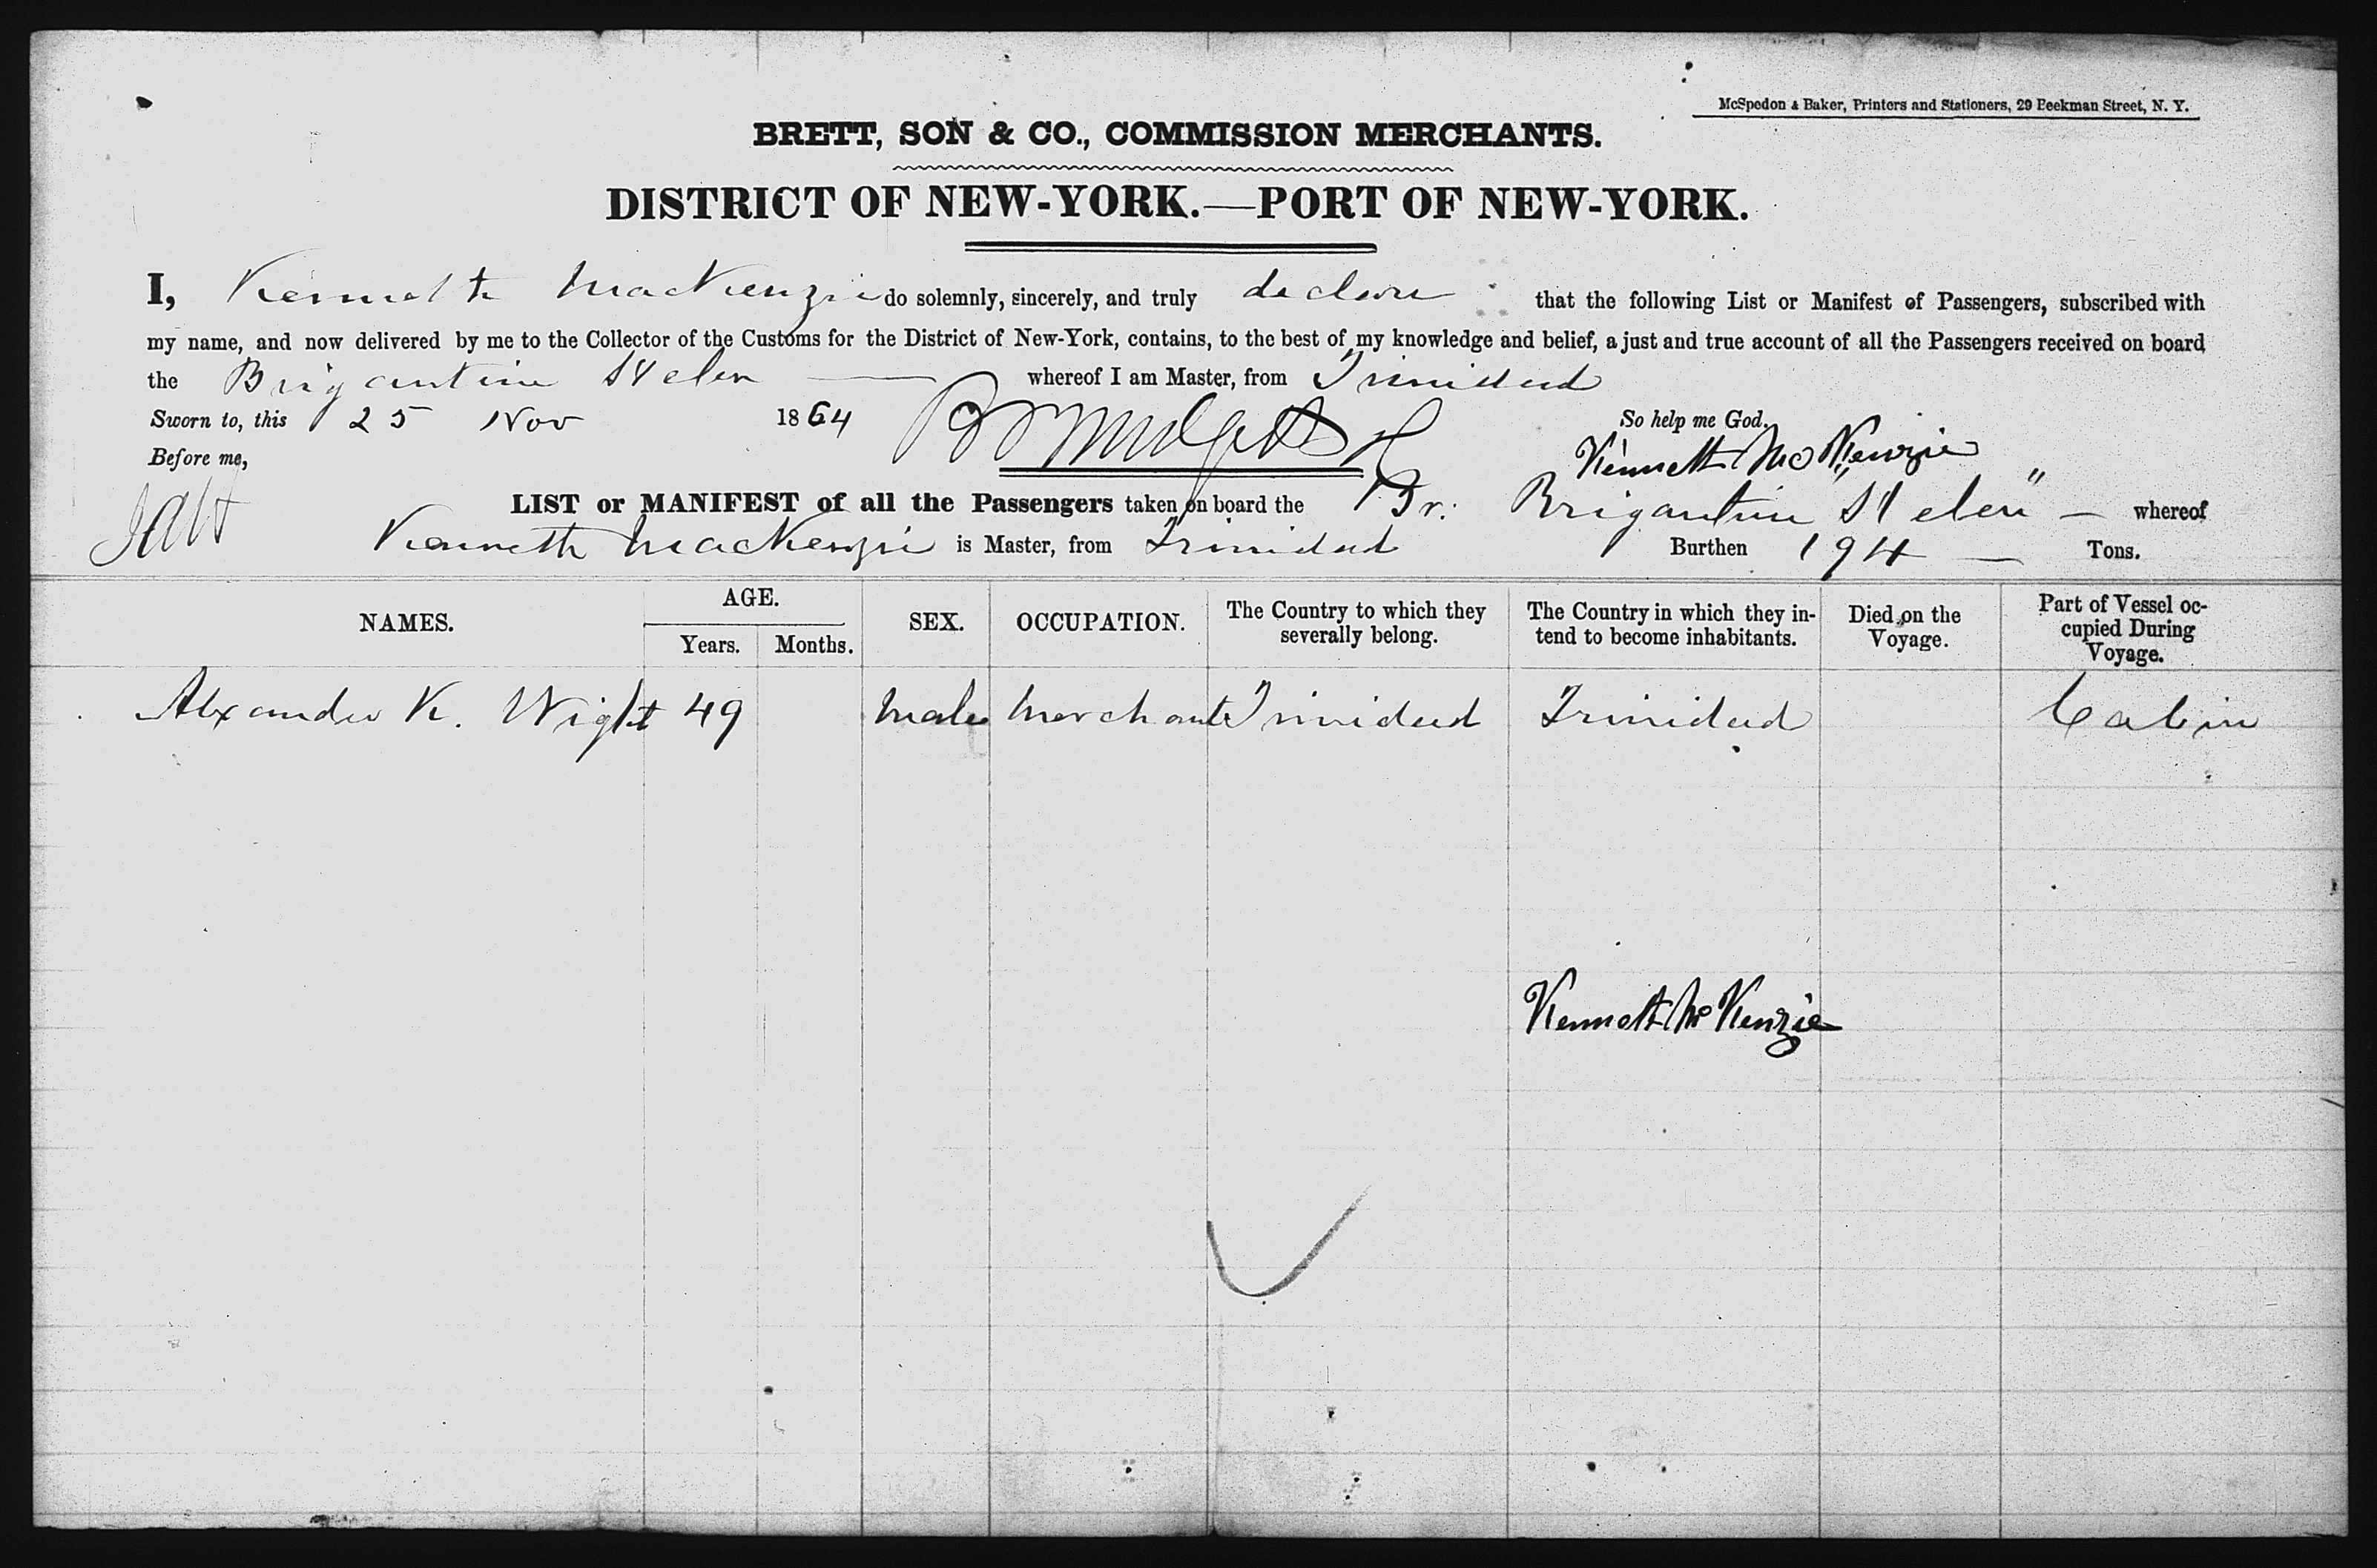 McSpedon & Baker, Printers and Stationers, 29 Beekman Street, N. Y.
BRETT, SON & CO., COMMISSION MERCHANTS.
DISTRICT OF NEW-YORK.—PORT OF NEW-YORK.
I, Kenneth MacKenzie do solemnly, sincerely, and truly declare that the following List or Manifest of Passengers, subscribed with
my name, and now delivered by me to the Collector of the Customs for the District of New-York, contains, to the best of my knowledge and belief, a just and true account of all the Passengers received on board
the Brigantine Helen — whereof I am Master, from Trinidad
Sworn to, this 25 Nov 1864 So help me God.
Before me, Kenneth McKenzie
LIST or MANIFEST of all the Passengers taken on board the Br. Brigantine "Helen" — whereof
Kenneth MacKenzie is Master, from Trinidad Burthen 194 — Tons.
NAMES. AGE. Years. Months. SEX. OCCUPATION. The Country to which they severally belong. The Country in which they intend to become inhabitants. Died on the Voyage. Part of Vessel occupied During Voyage.
Alexander K. Wight 49 Male Merchant Trinidad Trinidad Cabin
Kenneth McKenzie